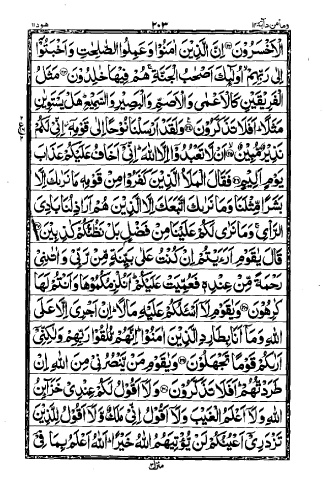 ومامن دآبة ١٢ ٢٠٣ هود ١١
الْاَخْسَرُوْنَ اِنَّ الَّذِيْنَ اٰمَنُوْا وَعَمِلُوا الصّٰلِحٰتِ وَاَخْبَتُوْۤا
اِلٰى رَبِّهِمْ اُولٰٓئِكَ اَصْحٰبُ الْجَنَّةِ هُمْ فِيْهَا خٰلِدُوْنَ مَثَلُ
الْفَرِيْقَيْنِ كَالْاَعْمٰى وَالْاَصَمِّ وَالْبَصِيْرِ وَالسَّمِيْعِ هَلْ يَسْتَوِيٰنِ
مَثَلًا اَفَلَا تَذَكَّرُوْنَ وَلَقَدْ اَرْسَلْنَا نُوْحًا اِلٰى قَوْمِهٖۤ اِنِّيْ لَكُمْ
نَذِيْرٌ مُّبِيْنٌ اَنْ لَّا تَعْبُدُوْۤا اِلَّا اللّٰهَ اِنِّيْۤ اَخَافُ عَلَيْكُمْ عَذَابَ
يَوْمٍ اَلِيْمٍ فَقَالَ الْمَلَاُ الَّذِيْنَ كَفَرُوْا مِنْ قَوْمِهٖ مَا نَرٰىكَ اِلَّا
بَشَرًا مِّثْلَنَا وَمَا نَرٰىكَ اتَّبَعَكَ اِلَّا الَّذِيْنَ هُمْ اَرَاذِلُنَا بَادِيَ
الرَّاْيِ وَمَا نَرٰى لَكُمْ عَلَيْنَا مِنْ فَضْلٍۭ بَلْ نَظُنُّكُمْ كٰذِبِيْنَ
قَالَ يٰقَوْمِ اَرَءَيْتُمْ اِنْ كُنْتُ عَلٰى بَيِّنَةٍ مِّنْ رَّبِّيْ وَاٰتٰىنِيْ
رَحْمَةً مِّنْ عِنْدِهٖ فَعُمِّيَتْ عَلَيْكُمْ اَنُلْزِمُكُمُوْهَا وَاَنْتُمْ لَهَا
كٰرِهُوْنَ وَيٰقَوْمِ لَاۤ اَسْـَٔلُكُمْ عَلَيْهِ مَالًا اِنْ اَجْرِيَ اِلَّا عَلَى
اللّٰهِ وَمَاۤ اَنَا بِطَارِدِ الَّذِيْنَ اٰمَنُوْا اِنَّهُمْ مُّلٰقُوْا رَبِّهِمْ وَلٰكِنِّيْۤ
اَرٰىكُمْ قَوْمًا تَجْهَلُوْنَ وَيٰقَوْمِ مَنْ يَّنْصُرُنِيْ مِنَ اللّٰهِ اِنْ
طَرَدْتُّهُمْ اَفَلَا تَذَكَّرُوْنَ وَلَاۤ اَقُوْلُ لَكُمْ عِنْدِيْ خَزَآئِنُ
اللّٰهِ وَلَاۤ اَعْلَمُ الْغَيْبَ وَلَاۤ اَقُوْلُ اِنِّيْ مَلَكٌ وَّلَاۤ اَقُوْلُ لِلَّذِيْنَ
تَزْدَرِيْۤ اَعْيُنُكُمْ لَنْ يُّؤْتِيَهُمُ اللّٰهُ خَيْرًا اَللّٰهُ اَعْلَمُ بِمَا فِيْۤ
منزل ٣